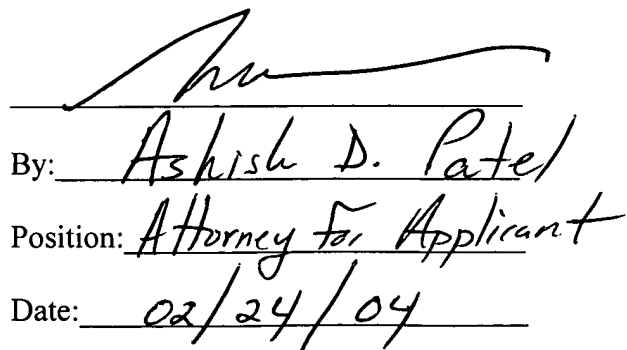 By: Ashish D. Patel
Position: Attorney For Applicant
Date: 02/24/04